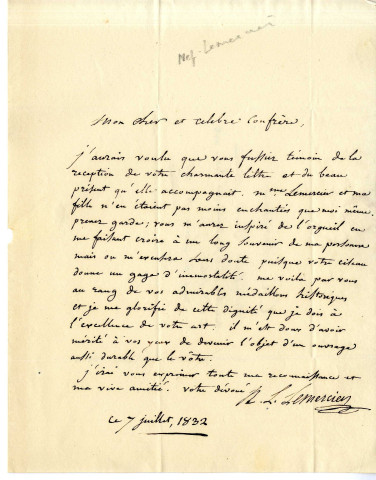 Nep. Lemercier
Mon cher et célèbre Confrère,
j'aurais voulu que vous fussiez témoin de la
reception de votre charmante lettre et du beau
présent qu'elle accompagnait. Mme Lemercier et ma
fille n'en étaient pas moins enchantées que moi même.
prenez garde; vous m'aurez inspiré de l'orgueil en
me faisant croire à un long souvenir de ma personne
mais on m'excusera sans doute puisque votre ciseau
donne un gage d'immortalité. me voilà par vous
au rang de vos admirables médaillons historiques
et je me glorifie de cette dignité que je dois à
l'excellence de votre art. il m'est doux d'avoir
mérité à vos yeux de devenir l'objet d'un ouvrage
aussi durable que le vôtre.
j'irai vous exprimer toute ma reconnaissance et
ma vive amitié. votre dévoué N. L. Lemercier
ce 7 juillet, 1832